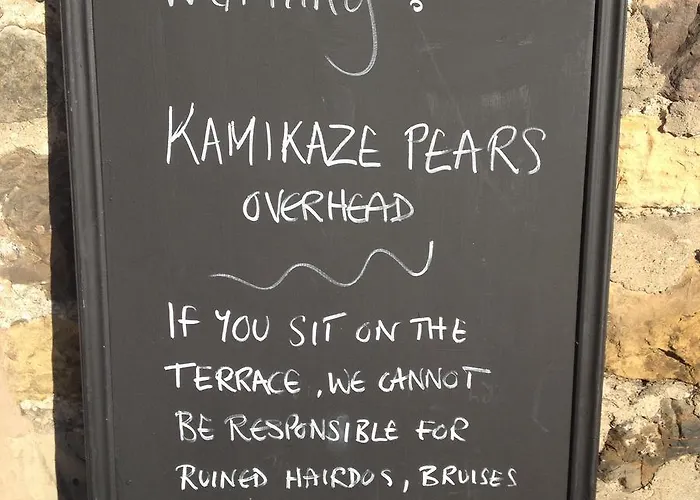 Warning!
KAMIKAZE PEARS
OVERHEAD
IF YOU SIT ON THE
TERRACE, WE CANNOT
BE RESPONSIBLE FOR
RUINED HAIRDOS, BRUISES